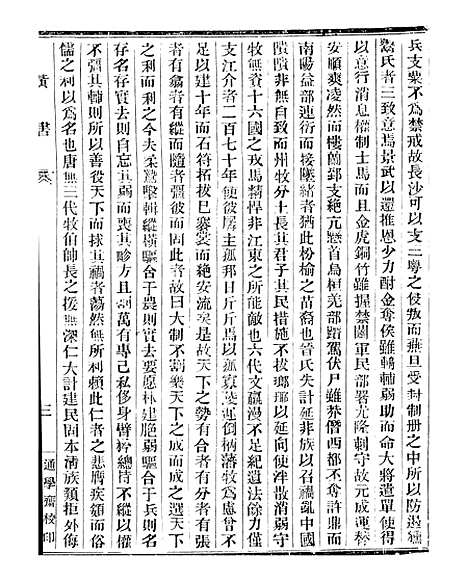 兵支蘖不爲禁戒故長沙可以支二粤之侵叛而燕旦受封制册之中所以防遏
氏者三致意焉景武以還推恩少力酎金奪侯雖輔弱助而命大將遣單使得
以意行消息權制士馬而且金虎銅竹雖握禁闥軍民部署尤隆刺守故元成運棽
安順爽凌然而樓蘭郅支絶亢懸首烏桓羌部踣駕伏尸雖莽僭西都不奪許鼎而
南陽益部連衍而接墜緒者猶此枌榆之苗裔也晉氏失計延非族以召禍亂中國
隤隤非無自致而州牧分土長其君子其民措施不拔瑯瑯以後紀使沣散消弱守
牧無資十六國之戎馬精悍非江東之所能敵也六代文羸漫不足紀遺法餘力僅
支江介者二百七十年使彼孱主孤邦日斤斤焉以孤寡運倒柄藩牧爲慮曾不
足以建十年而石符拓拔巳褰裳而絶安流矣是故天下之勢有合者有分者有張
者有翕者有縱而隨者有彌彼而固此者故曰大制不割樂天下之成而成之選天下
之利而利之今夫柔鷙擊輯縱橫驅合于農則去要愿林建脆弱驅合于兵則名
存名存實去則自忘其弱而喪其畛方且割萬有專己私侈身臂矜總持不縱以權
不彌其輔則所以善役天下而救其禍者蕩然無所利賴此仁者之悲膺疾頞而俗
儒之利以爲名也唐無三代牧伯帥長之援無深仁大計建民固本淸族類拒外侮
黃書
三
通學齋校印